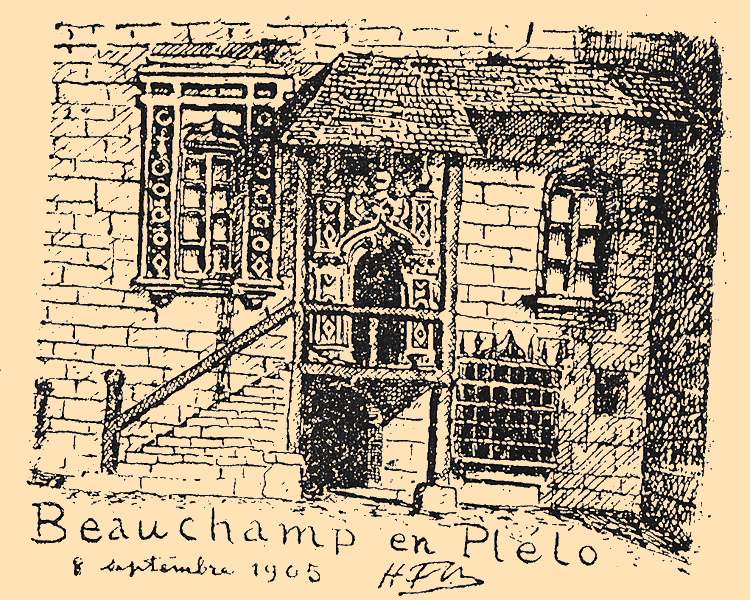 Beauchamp en Plélo
8 septembre 1905